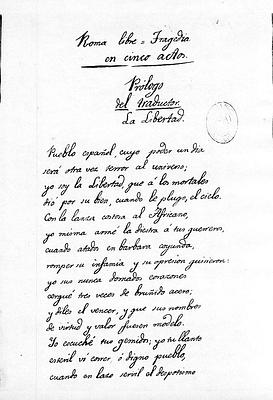 Roma libre = Tragedia
en cinco actos.
Prólogo
del traductor.
La Libertad.
Pueblo español, cuyo poder un dia
será otra vez terror al universo;
yo soy la Libertad, que á los mortales
dió por su bien, cuando le plugo, el cielo.
Con la lanza contra el Africano,
yo misma armé la diestra á tus guerreros,
cuando atado en barbara coyunda,
romper su infamia y su opresion quisieron:
yo sus nunca domados corazones
cerqué tres veces de bruñido acero;
y díles el vencer, y que sus nombres
de virtud y valor fuesen modelo.
Yo escuché tus gemidos; yo tu llanto
esteril vi correr ó digno pueblo,
cuando en lazo servil el despotismo